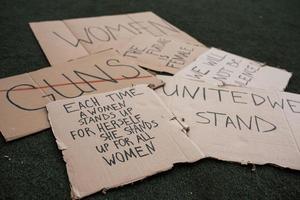 WOMEN
THE FUTURE IS FEMALE
WE WILL
NOT BE
SILENCED
GUNS
UNITED WE
STAND
EACH TIME
A WOMEN
STANDS UP
FOR HERSELF
SHE STANDS
UP FOR ALL
WOMEN